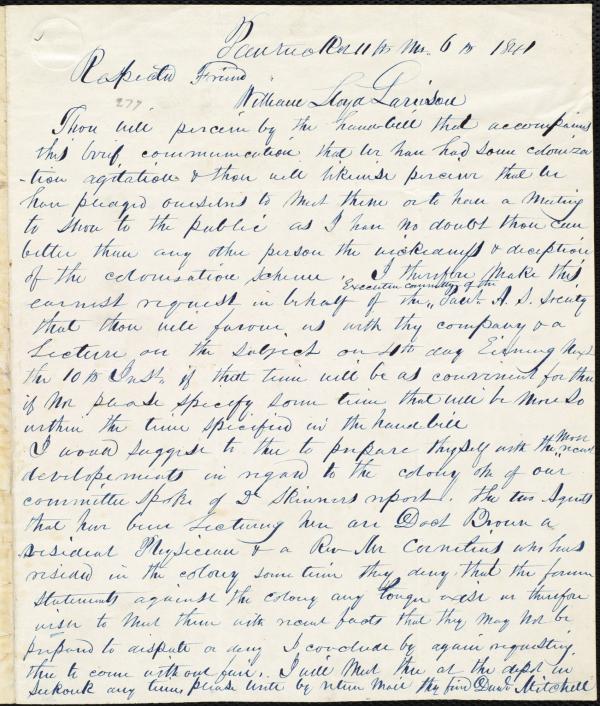 Pawtucket 11th Mo. 6th 1841
Respected Friend
277
William Lloyd Garrison
Thou will perceive by the handbill that accompanies
this brief communication that we have had some coloniza
-tion agitation & thou will likewise perceive that we
have pledged ourselves to meet them or to have a meeting
to show to the public as I have no doubt thou can
better than any other person the wickedness & deception
of the colonisation scheme. I therefore make this
Executive committee of the
earnest request in behalf of the Pawt. A. S. Society
that thou will favour us with thy company & a
Lecture on the subject on 4th day Evening Next
the 10th Inst. if that time will be as convenient for thee
if not please specify some time that will be more so
within the time specified in the handbill
I would suggest to thee to prepare thyself with the more recent
developements in regard to the colony one of our
committee spoke of Dr Skinners report. The two Agents
that have been Lecturing here are Doct Brown a
resident Physician & a Rev Mr Cornelius who has
resided in the colony some time they deny that the former
statements against the colony any longer exist we therefore
wish to meet them with recent facts that they may not be
prepared to dispute or deny I conclude by again requesting
thee to come without fail. I will meet thee at the depot in
Seekonk any time, please write by return mail thy friend Danl Mitchell